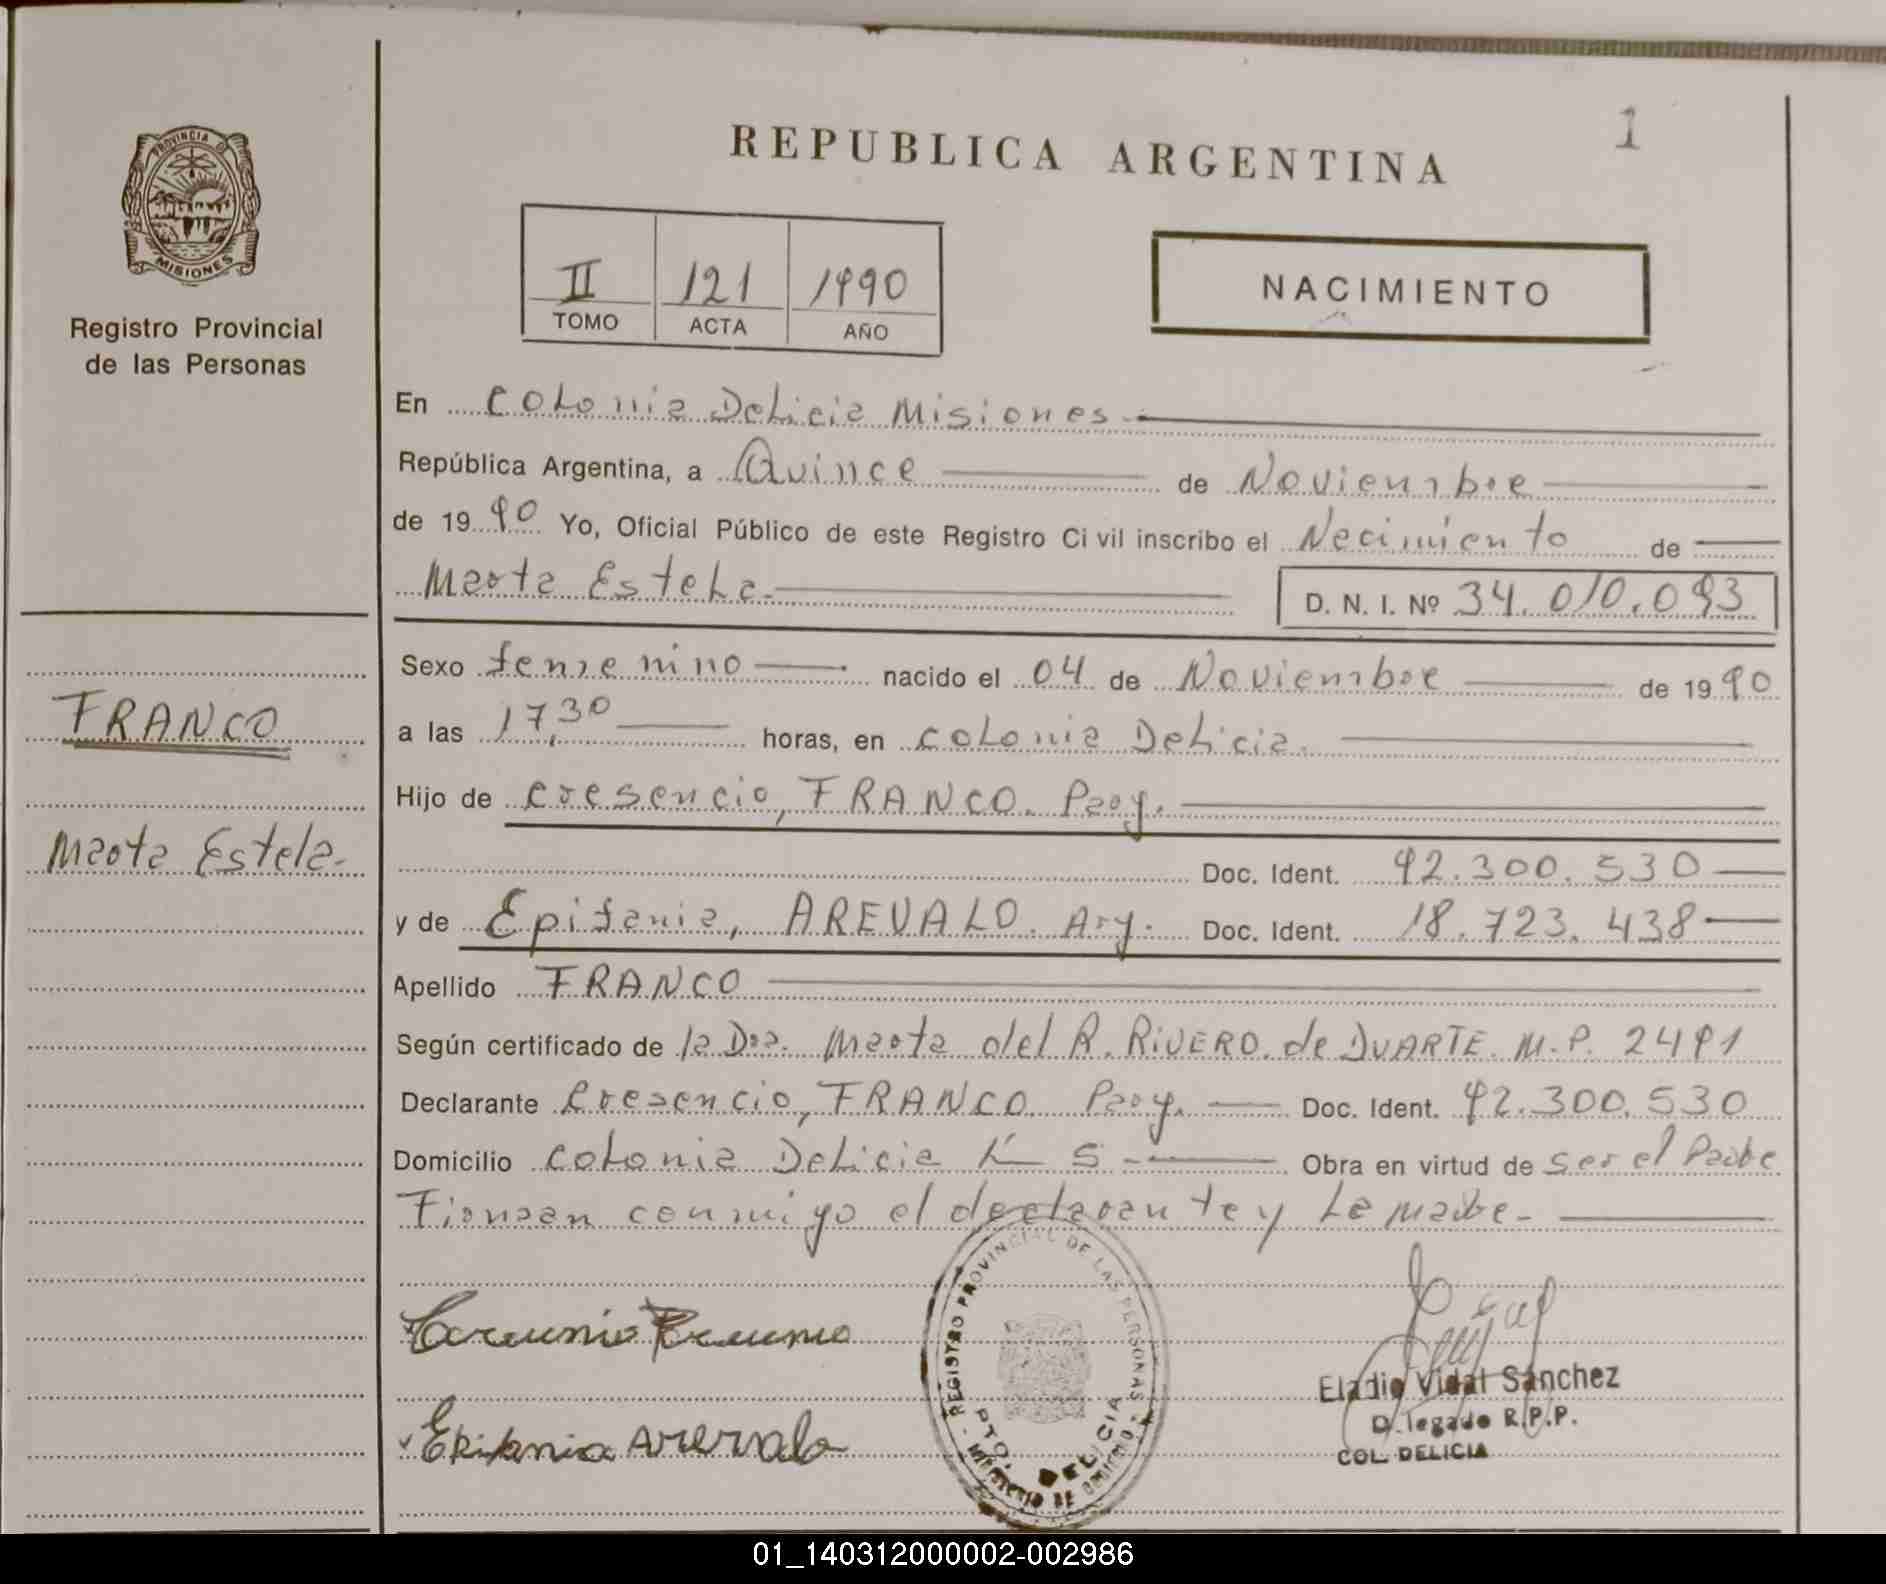 PROVINCIA D
MISIONES
Registro Provincial
de las Personas
FRANCO
Marta Estela.
1
REPUBLICA ARGENTINA
II 121 1990
TOMO ACTA AÑO
NACIMIENTO
En Colonia Delicia Misiones
República Argentina, a Quince de Noviembre
de 1990 Yo, Oficial Público de este Registro Civil inscribo el Nacimiento de
Marta Estela. D. N. I. Nº 34.010.093
Sexo femenino nacido el 04 de Noviembre de 1990
a las 17,30 horas, en Colonia Delicia.
Hijo de Cresencio, FRANCO. Pary.
Doc. Ident. 92.300.530
y de Epifania, AREVALO. Arg. Doc. Ident. 18.723.438
Apellido FRANCO
Según certificado de la Dra. Marta del R. RIVERO de DUARTE M.P. 2491
Declarante Cresencio, FRANCO Pary. Doc. Ident. 92.300.530
Domicilio Colonia Delicia K 5 Obra en virtud de ser el Padre
Firman conmigo el declarante y La madre-
REGISTRO PROVINCIAL DE LAS PERSONAS
PTO. DELICIA
MINISTERIO DE GOBIERNO
Epifania Arevalo
Eladio Vidal Sánchez
Delegado R.P.P.
COL. DELICIA
01_140312000002-002986